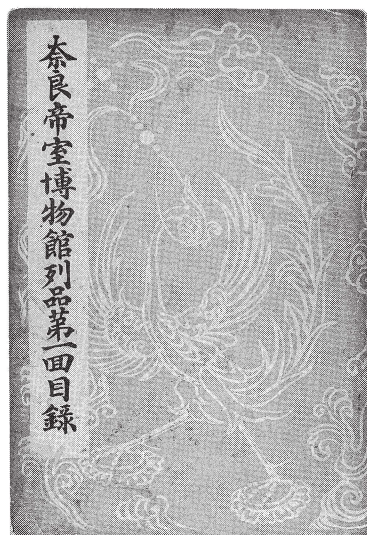 奈良帝室博物館列品第一回目録